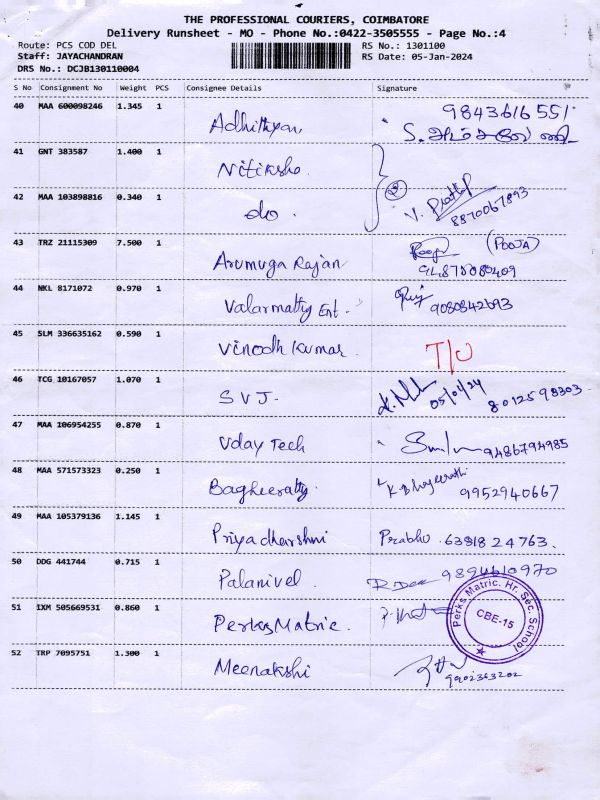 THE PROFESSIONAL COURIERS, COIMBATORE
Delivery Runsheet - MO - Phone No.:0422-3505555 - Page No.:4
Route: PCS COD DEL RS No.: 1301100
Staff: JAYACHANDRAN RS Date: 05-Jan-2024
DRS No.: DCJB130110004
S No Consignment No Weight PCS Consignee Details Signature
40 MAA 600098246 1.345 1 Adhithyan 9843616551
41 GNT 383587 1.400 1 Nitiksha.
42 MAA 103898816 0.340 1 do. 2 V. Prathap 8870067893
43 TRZ 21115309 7.500 1 Arumuga Rajan Pooja (POOJA)
44 NKL 8171072 0.970 1 Valarmathy Ent. 9080842693
45 SLM 336635162 0.590 1 Vinodh Kumar. T/U
46 TCG 10167057 1.070 1 S V J. 05/01/24 8012598303
47 MAA 106954255 0.870 1 Uday Tech 9486794985
48 MAA 571573323 0.250 1 Bagheerathy. K Bhageerathi 9952940667
49 MAA 105379136 1.145 1 Priyadharshni Prabhu. 6381824763.
50 DDG 441744 0.715 1 Palanivel. 9894610970
51 IXM 505669531 0.860 1 Perks Matric. Perks Matric. Hr. Sec. School CBE-15
52 TRP 7095751 1.300 1 Meenakshi 9902363202